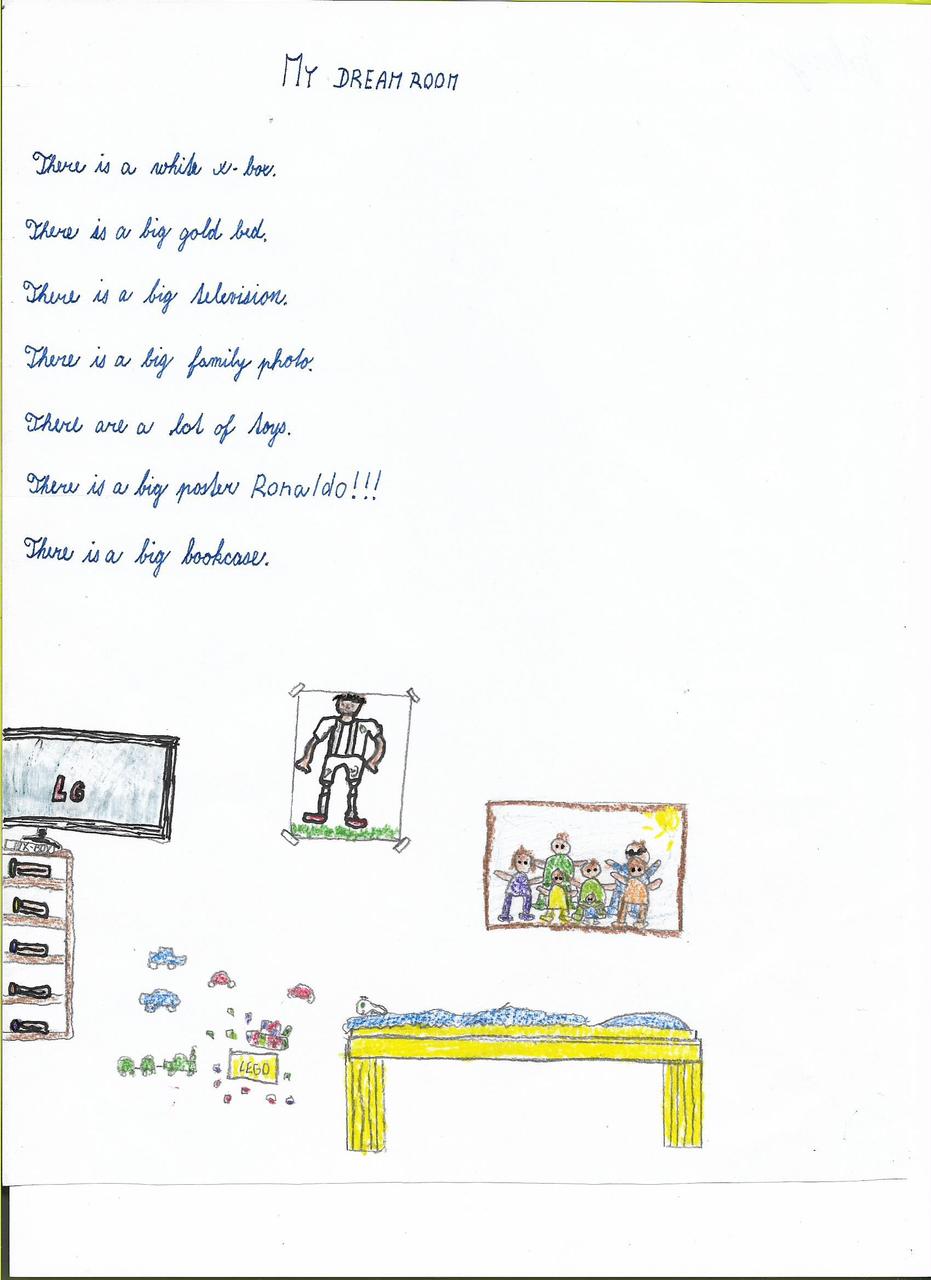 MY DREAM ROOM
There is a white x-box.
There is a big gold bed.
There is a big television.
There is a big family photo.
There are a lot of toys.
There is a big poster Ronaldo!!!
There is a big bookcase.
LG
X-BOX
LEGO